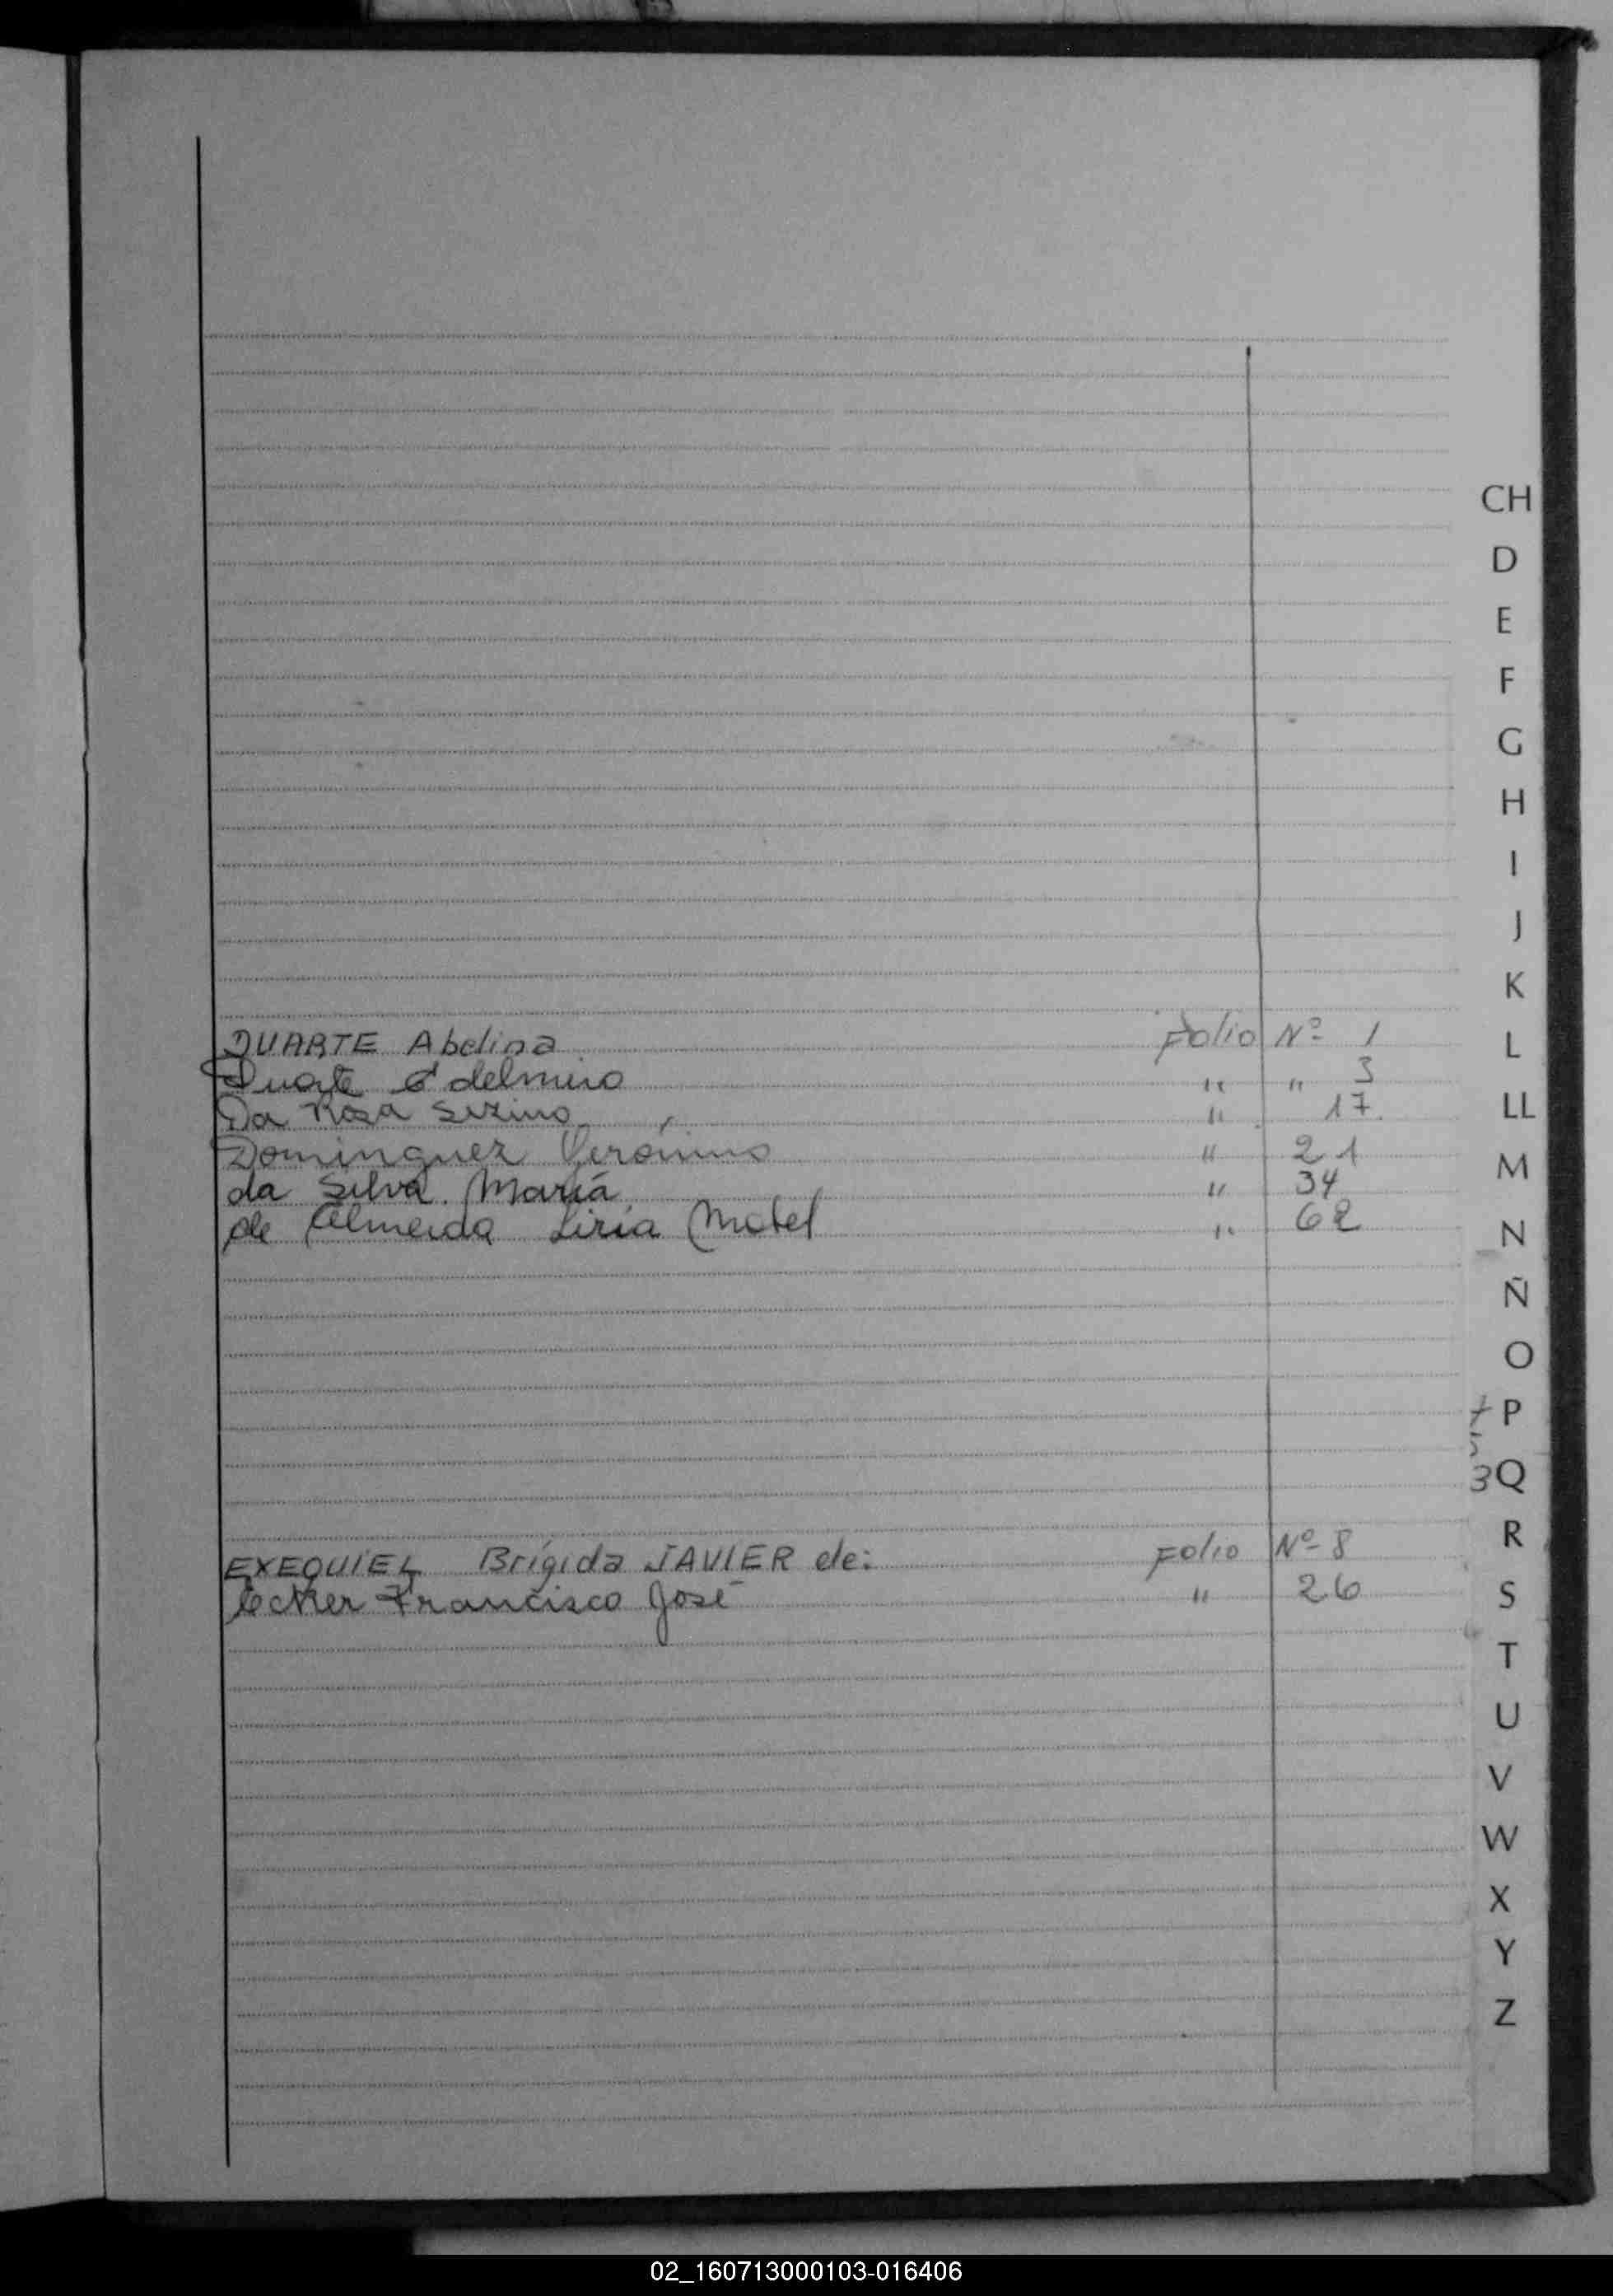 DUARTE Abelina Folio Nº 1
Duarte Edelmiro " " 3
Da Rosa Sirino " 17.
Dominguez Gerónimo " 21
da Silva María " 34
de Almeida Liria Mabel " 62
EXEQUIEL Brígida JAVIER de: Folio Nº 8
Ecker Francisco José " 26
CH
D
E
F
G
H
I
J
K
L
LL
M
N
Ñ
O
P
3 Q
R
S
T
U
V
W
X
Y
Z
02_160713000103-016406